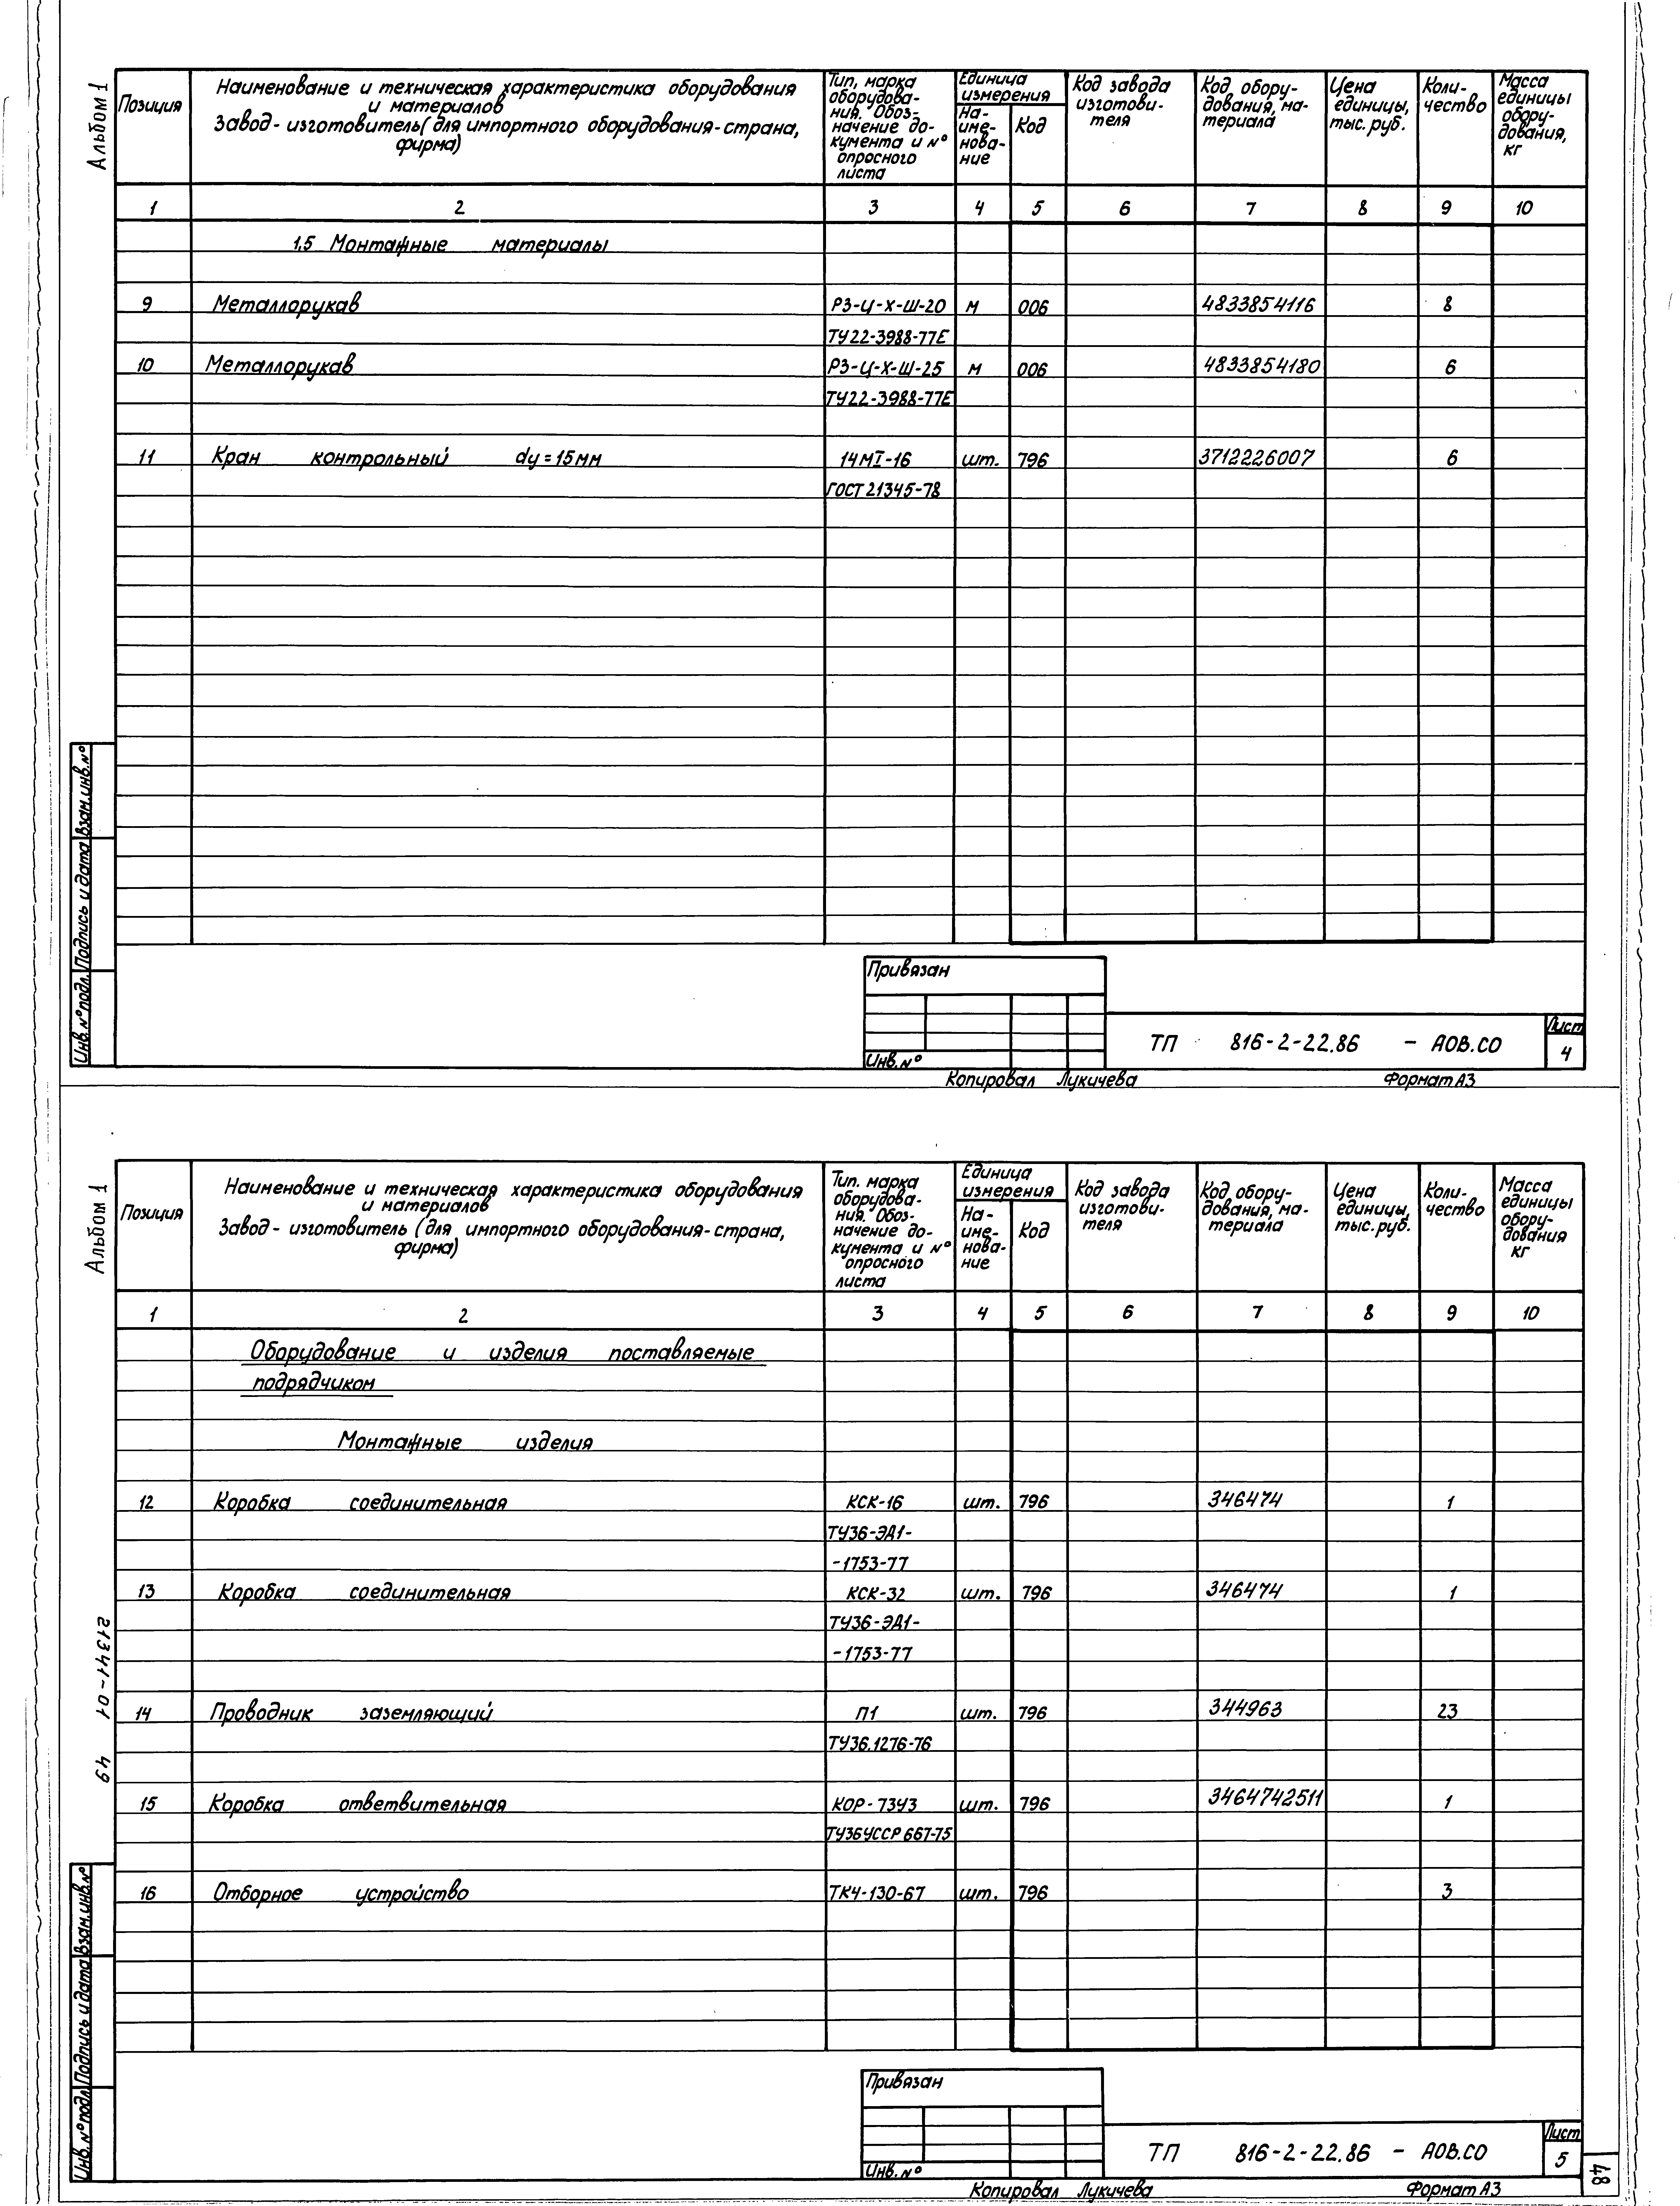 Альбом 1
Позиция
Наименование и техническая характеристика оборудования
и материалов
Завод-изготовитель (для импортного оборудования-страна,
фирма)
Тип, марка
оборудова-
ния. Обоз-
начение до-
кумента и №
опросного
листа
Единица
измерения
На-
име-
нова-
ние
Код
Код завода
изготови-
теля
Код обору-
дования, ма-
териала
Цена
единицы,
тыс. руб.
Коли-
чество
Масса
единицы
обору-
дования,
кг
1 2 3 4 5 6 7 8 9 10
1.5 Монтажные материалы
9 Металлорукав РЗ-Ц-Х-Ш-20 м 006 4833854116 8
ТУ22-3988-77Е
10 Металлорукав РЗ-Ц-Х-Ш-25 м 006 4833854180 6
ТУ22-3988-77Е
11 Кран контрольный dу=15мм 14МI-16 шт. 796 3712226007 6
ГОСТ 21345-78
Инв. № подл. Подпись и дата Взам. инв. №
Привязан
Инв. №
ТП 816-2-22.86 - АОВ.СО
Лист
4
Копировал Лукичева Формат А3
Альбом 1
Позиция
Наименование и техническая характеристика оборудования
и материалов
Завод-изготовитель (для импортного оборудования-страна,
фирма)
Тип. марка
оборудова-
ния. Обоз-
начение до-
кумента и №
опросного
листа
Единица
измерения
На-
име-
нова-
ние
Код
Код завода
изготови-
теля
Код обору-
дования, ма-
териала
Цена
единицы,
тыс. руб.
Коли-
чество
Масса
единицы
обору-
дования
кг
1 2 3 4 5 6 7 8 9 10
Оборудование и изделия поставляемые
подрядчиком
Монтажные изделия
12 Коробка соединительная КСК-16 шт. 796 346474 1
ТУ36-ЭД1-
-1753-77
13 Коробка соединительная КСК-32 шт. 796 346474 1
ТУ36-ЭД1-
-1753-77
14 Проводник заземляющий П1 шт. 796 344963 23
ТУ36.1276-76
15 Коробка ответвительная КОР-73У3 шт. 796 3464742511 1
ТУ36УССР 667-75
16 Отборное устройство ТК4-130-67 шт. 796 3
21341-01 49
Инв. № подл. Подпись и дата Взам. инв. №
Привязан
Инв. №
ТП 816-2-22.86 - АОВ.СО
Лист
5
48
Копировал Лукичева Формат А3